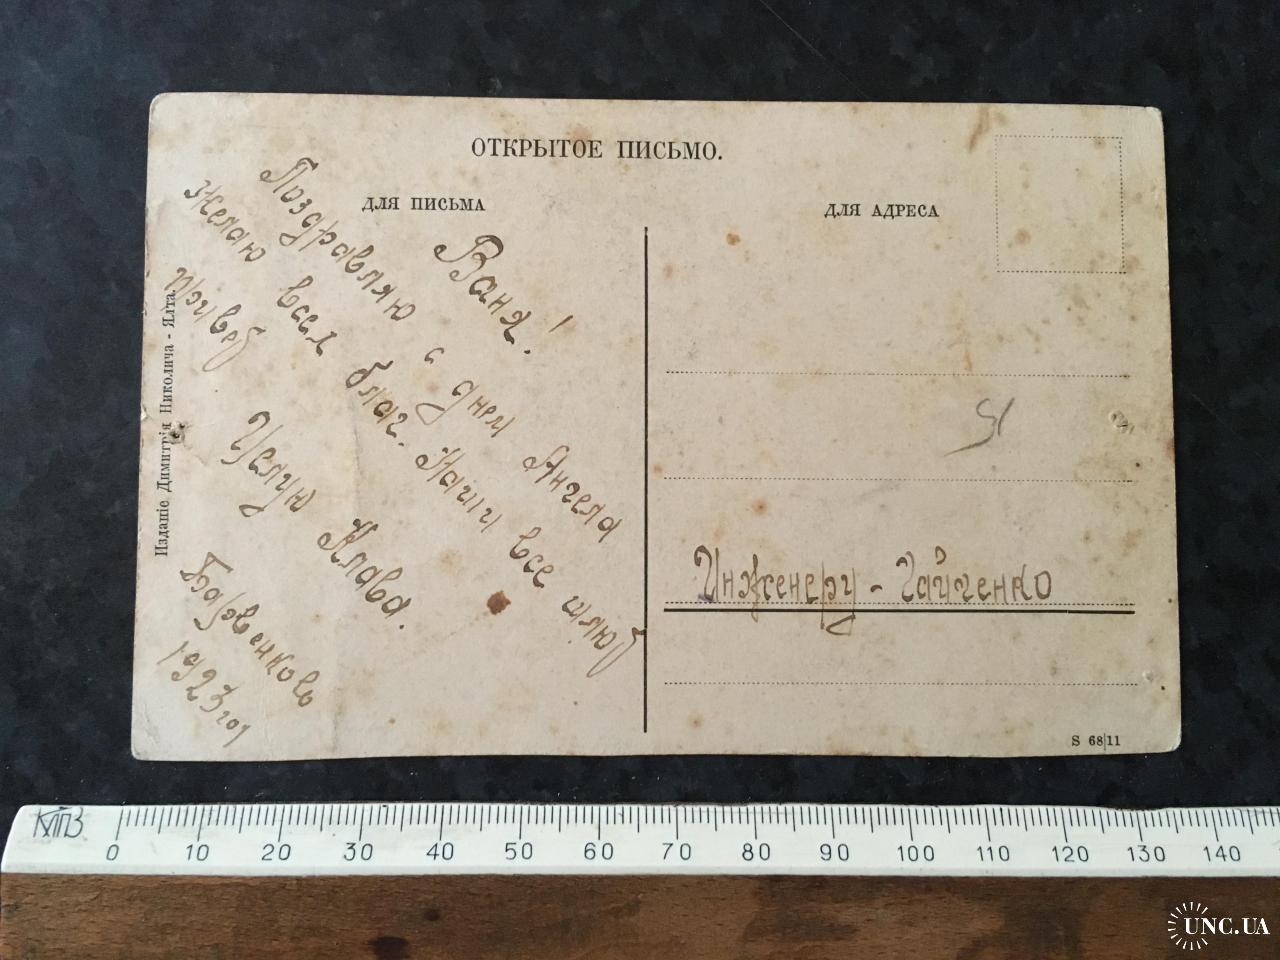 ОТКРЫТОЕ ПИСЬМО.
ДЛЯ ПИСЬМА
ДЛЯ АДРЕСА
Ваня!
Поздравляю с днем Ангела
Желаю всех благ. Наши все шлют
привет
Целую Клава.
Барвенково
1923 го
Инженеру - Гайченко
Изданіе Димитрія Николича - Ялта.
S 68 11
КТПЗ
0 10 20 30 40 50 60 70 80 90 100 110 120 130 140
UNC.UA